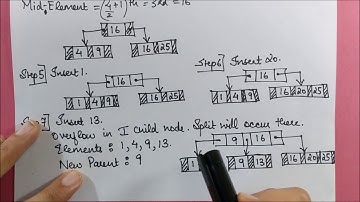 Mid-Element = (4+1/2)th = 3rd = 16
16
4 9 16 25
Step5 Insert 1.
Step6 Insert 20.
16
16
1 4 9
16 25
1 4 9
16 20 25
Insert 13.
Overflow in I child node. Split will occur there.
Elements : 1, 4, 9, 13.
New Parent : 9
9 16
1
9 13
16 20 25